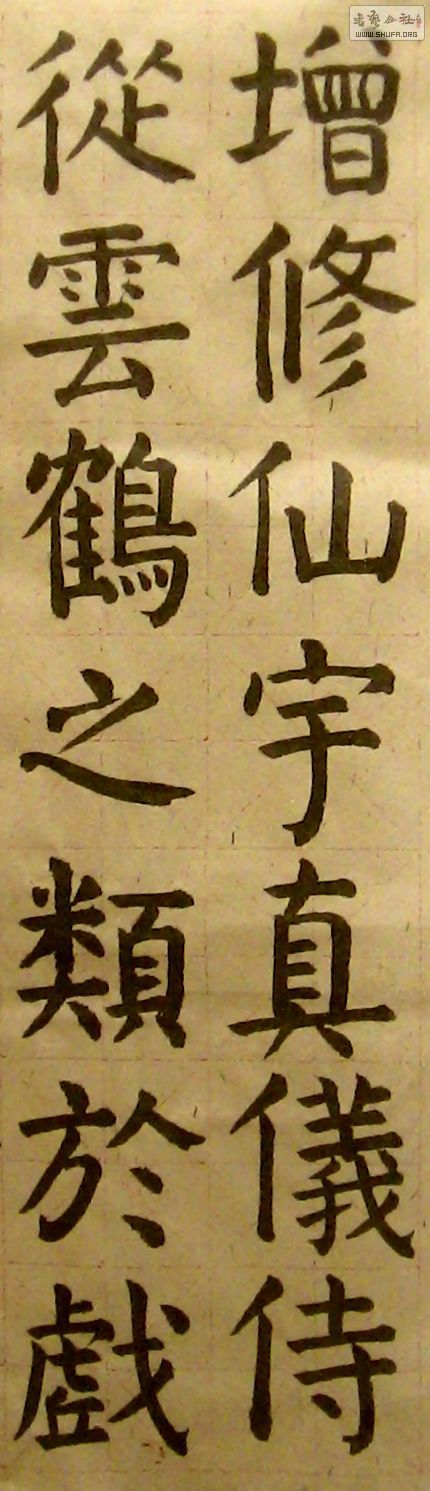 增修仙宇真儀侍
從雲鶴之類於戲
書藝公社
WWW.SHUFA.ORG